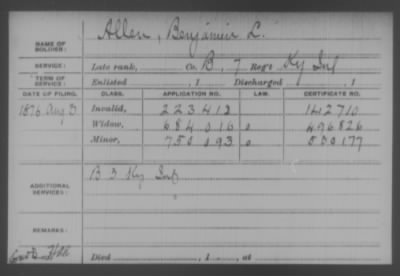 Allen, Benjamin L.
NAME OF SOLDIER:
SERVICE: Late rank, Co. B, 7 Reg't Ky Inf
TERM OF SERVICE: Enlisted , 1 Discharged , 1
DATE OF FILING. CLASS. APPLICATION NO. LAW. CERTIFICATE NO.
1876 Aug 3 Invalid, 223412 142710
Widow, 684016 0 496826
Minor, 750093 0 550177
ADDITIONAL SERVICES: B 3 Ky Inf
REMARKS:
Died , 1 , at